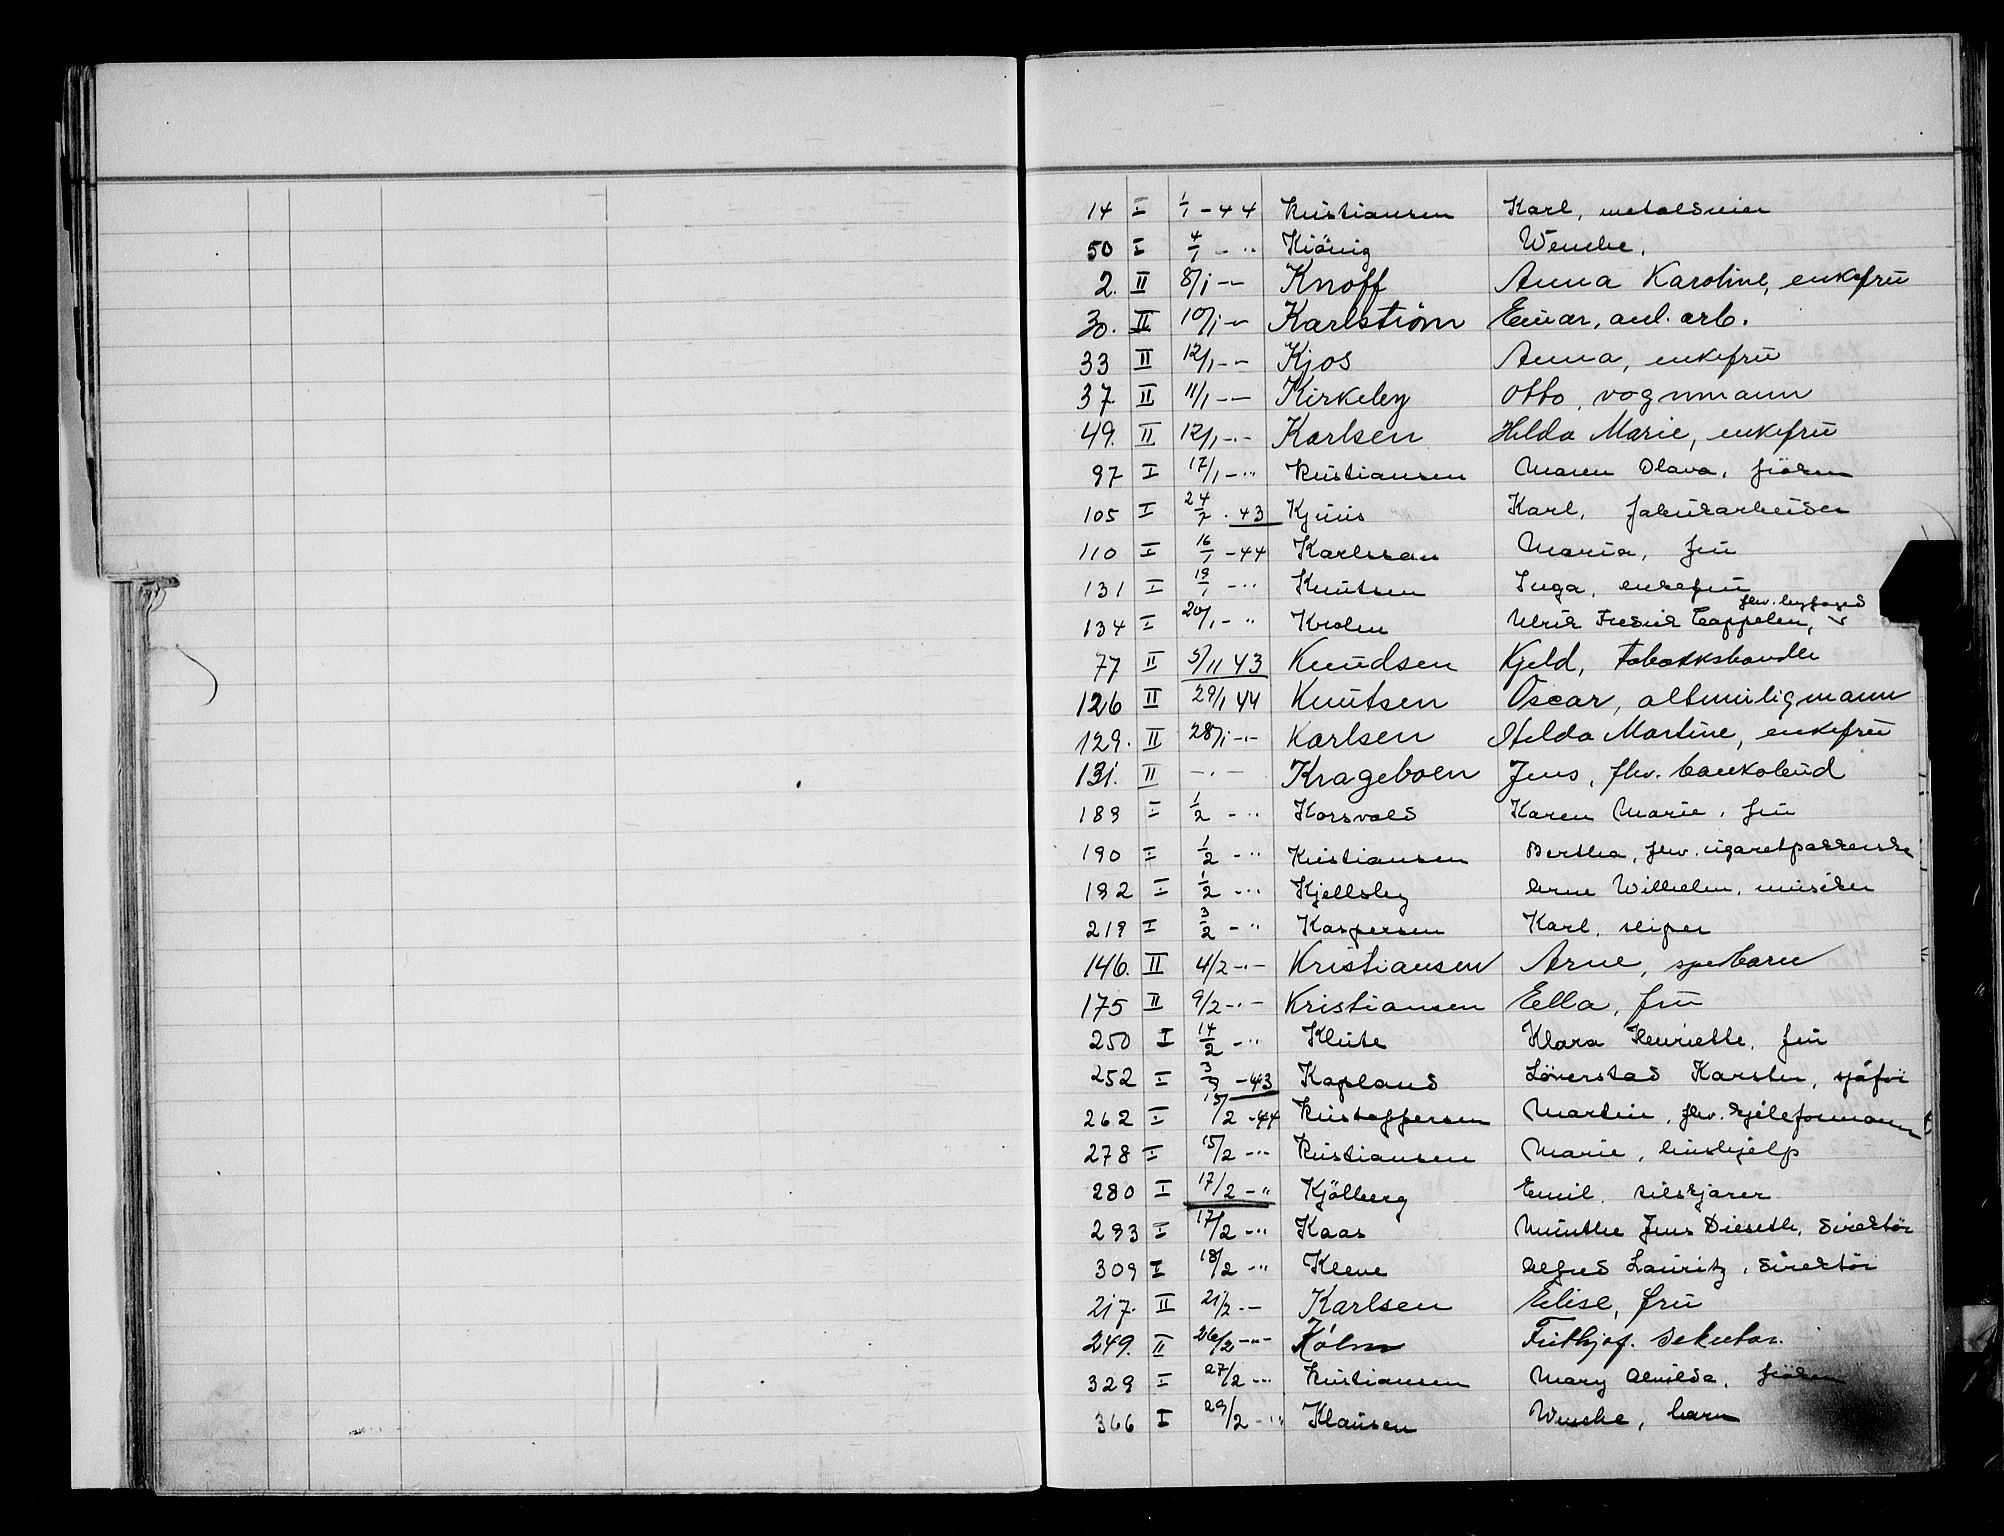 14 I 1/1 - 44 Kristiansen Karl, metaldreier
50 I 4/1 - " Kiönig Wenche,
2. II 8/1 - - Knoff Anna Karoline, enkefru
30. II 10/1 - - Karlstrøm Einar, anl. arb.
33 II 12/1 - - Kjos Anna, enkefru
37 II 11/1 - - Kirkeby Otto, vognmann
49. II 12/1 - " - Karlsen Hilda Marie, enkefru
97 I 17/1 - " Kristiansen Maren Olava, fröken
105 I 24/7 - 43 Kjuus Karl, fabrikarbeider
110 I 16/1 - 44 Karlssen Maria, fru
131 I 19/1 - " Knutsen Inga, enkefru
134 I 20/1 - " Krolen Ulrik Fredrik Cappelen, fhv. byfoged
77 II 5/11 43 Knudsen Kjeld, tobakkshandle
126 II 29/1 44 Knutsen Oscar, altmuligmann
129. II 28/1 - " - Karlsen Hilda Martine, enkefru
131. II - " - Krageboen Jens, fhv. bankobud
189 I 1/2 - " Korsvold Karen Marie, fru
190 I 1/2 - " Kristiansen Bertha, fhv. cigaretpakkerske
192 I 1/2 - " Kjellsby Arne Wilhelm, musiker
219 I 3/2 - " Kaspersen Karl, reiper
146. II 4/2 - " - Kristiansen Arne, spebarn
175 II 9/2 - " - Kristiansen Ella, fru
250 I 14/2 - " Klute Klara Henriette, fru
252 I 3/9 - 43 Kopland Löverstad Karsten, sjåför
262 I 15/2 - 44 Kristoffersen Martin, fhv. kjeleformann
278 I 15/2 - " Kristiansen Marie, hushjelp
280 I 17/2 - " Kjölberg Emil, stilskjærer
293 I 17/2 - " Kaas Munthe Jens Dieseth, direktör
309 I 18/2 - " Kleve Alfred Lauritz, direktör
217. II 21/2 - - Karlsen Elise, fru
249. II 26/2 - " - Holm Frithjof, sekretær.
329 I 27/2 - " Kristiansen Mary Alvilda, fröken
366 I 29/2 - " Klausen Wenche, barn